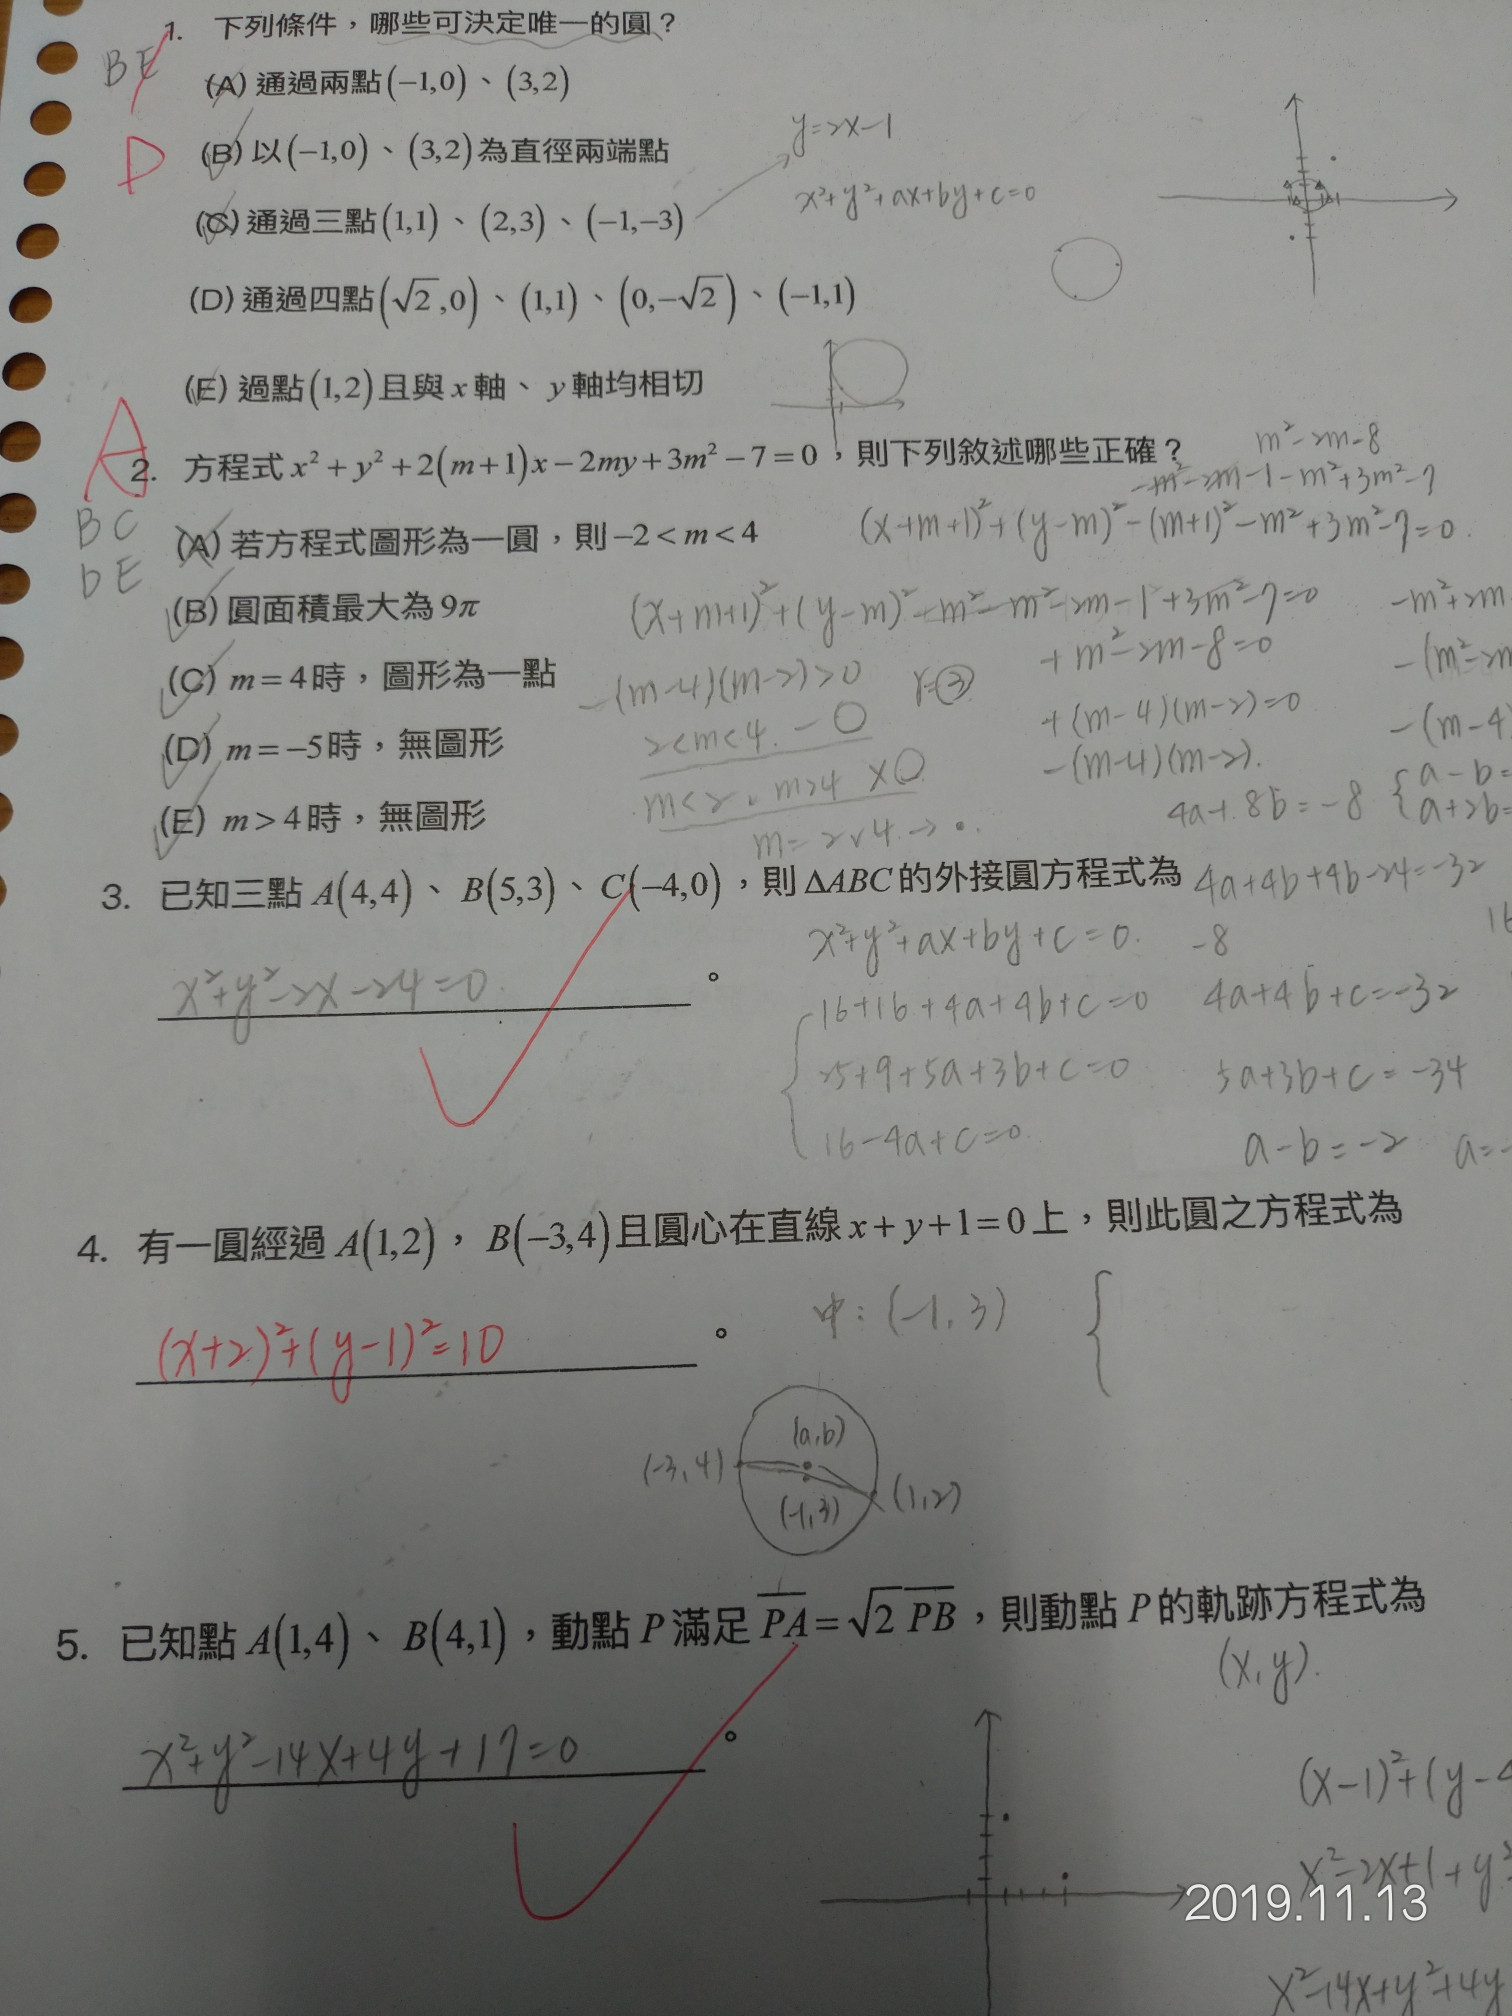 1. 下列條件，哪些可決定唯一的圓？
BE
(A) 通過兩點(−1,0)、(3,2)
D
(B) 以(−1,0)、(3,2)為直徑兩端點
y=2x−1
x²+y²+ax+by+c=0
(C) 通過三點(1,1)、(2,3)、(−1,−3)
(D) 通過四點(√2,0)、(1,1)、(0,−√2)、(−1,1)
(E) 過點(1,2)且與x軸、y軸均相切
A
2. 方程式x²+y²+2(m+1)x−2my+3m²−7=0，則下列敘述哪些正確？
m²−2m−8
−m²−2m−1−m²+3m²−7
BC
DE
(A) 若方程式圖形為一圓，則−2<m<4
(x+m+1)²+(y−m)²−(m+1)²−m²+3m²−7=0.
(B) 圓面積最大為9π
(x+m+1)²+(y−m)²−m²−m²−2m−1+3m²−7=0
−m²+2m
+m²−2m−8=0
−(m²−2m
(C) m=4時，圖形為一點
−(m−4)(m−2)>0
r=③
+(m−4)(m−2)=0
−(m−4)
2<m<4.−○
(D) m=−5時，無圖形
−(m−4)(m−2).
m<2、m>4 ×○
a−b=
4a+8b=−8
a+2b=
(E) m>4時，無圖形
m=2、4.→•.
3. 已知三點A(4,4)、B(5,3)、C(−4,0)，則ΔABC的外接圓方程式為
4a+4b+4b−24=−32
x²+y²+ax+by+c=0.
−8
16
x²+y²−2x−24=0.
。
16+16+4a+4b+c=0
4a+4b+c=−32
25+9+5a+3b+c=0
5a+3b+c=−34
16−4a+c=0
a−b=−2
a=−
4. 有一圓經過A(1,2)，B(−3,4)且圓心在直線x+y+1=0上，則此圓之方程式為
中:(−1,3)
(x+2)²+(y−1)²=10
。
(a,b)
(−3,4)
(−1,3)
(1,2)
5. 已知點A(1,4)、B(4,1)，動點P滿足PA=√2PB，則動點P的軌跡方程式為
(x,y).
x²+y²−14x+4y+17=0
。
(x−1)²+(y−4
x²−2x+1+y²
2019.11.13
x²−14x+y²+4y